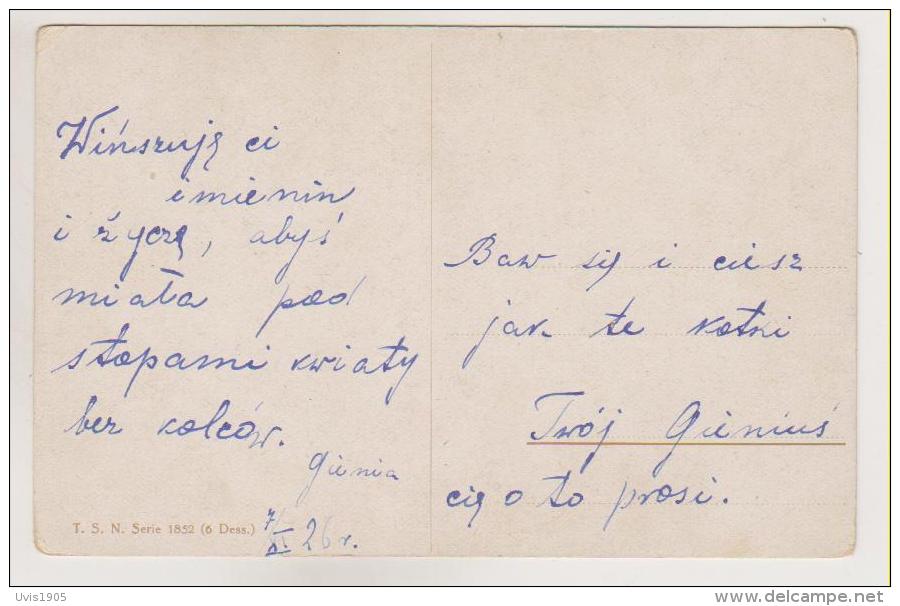 Winszuję ci
imienin
i życzę, abyś
miała pod
stopami kwiaty
bez kolców.
Gienia
26 r.
T. S. N. Serie 1852 (6 Dess.)
Baw się i ciesz
jak te kotki
Twój Gieniuś
cię o to prosi.
Uvis1905
www.delcampe.net